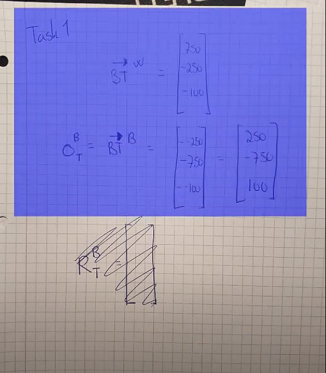 Task 1
BT^W = [750 -250 -100]
O_T^B = BT^B = [--250 -750 --100] = [250 -750 100]
R_T^B =